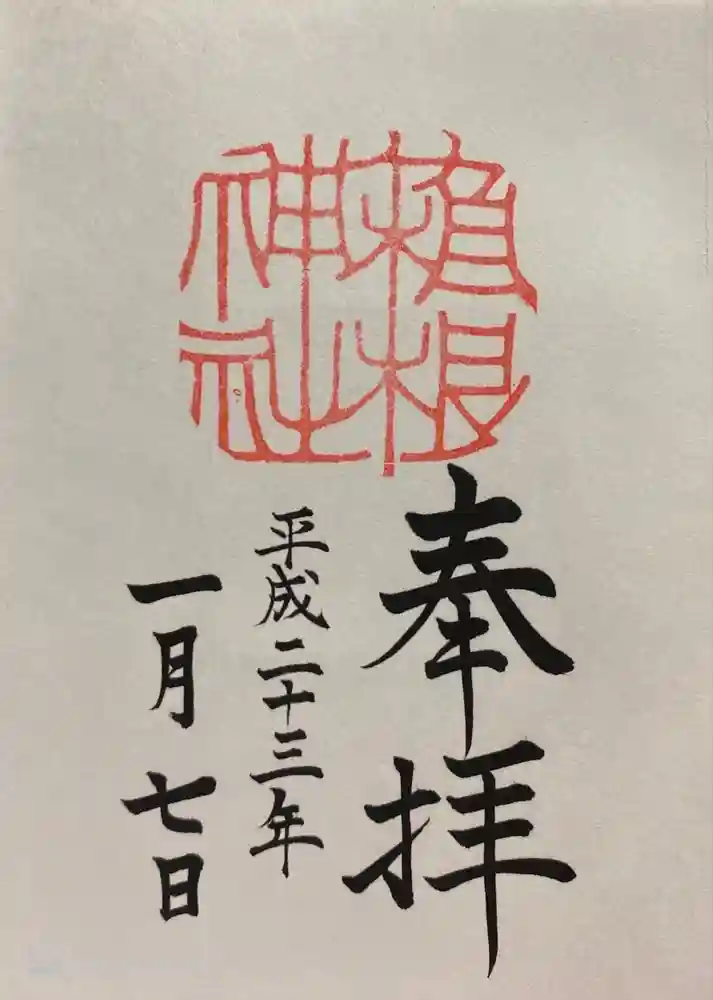 神社
奉拝
平成二十三年
一月七日